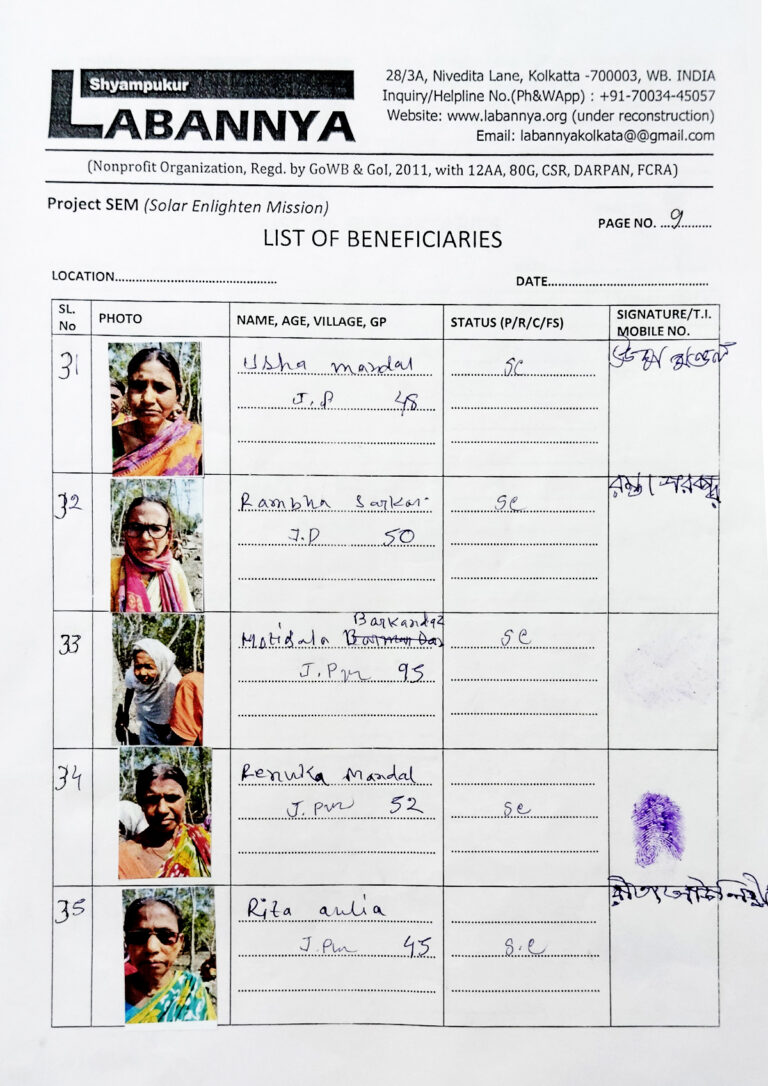 Shyampukur
LABANNYA
28/3A, Nivedita Lane, Kolkatta -700003, WB. INDIA
Inquiry/Helpline No.(Ph&WApp) : +91-70034-45057
Website: www.labannya.org (under reconstruction)
Email: labannyakolkata@@gmail.com
(Nonprofit Organization, Regd. by GoWB & GoI, 2011, with 12AA, 80G, CSR, DARPAN, FCRA)
Project SEM (Solar Enlighten Mission)
PAGE NO. ...9...........
LIST OF BENEFICIARIES
LOCATION................................................
DATE................................................
SL. No PHOTO NAME, AGE, VILLAGE, GP STATUS (P/R/C/FS) SIGNATURE/T.I. MOBILE NO.
31 Usha mandal SC
J.P 48
32 Rambha Sarkar SC রম্ভা সরকার
J.P 50
Barkandaz
33 Motibala SC
J.Pur 95
34 Renuka Mandal
J.Pur 52 SC
35 Rita aulia রীতা আউলিয়া
J.Pur 45 S.C